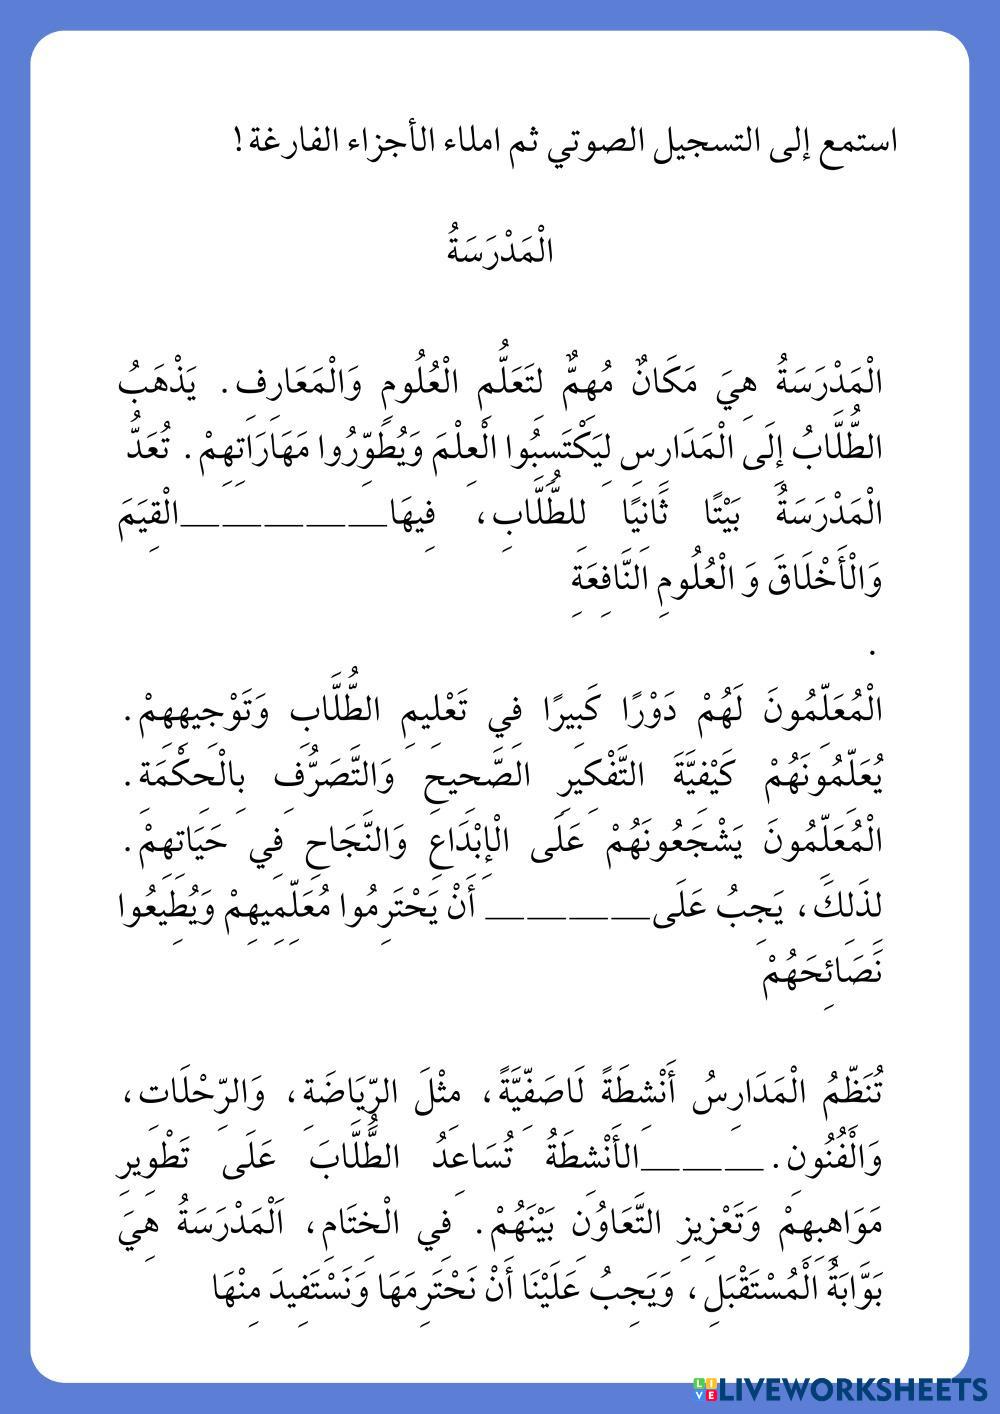 استمع إلى التسجيل الصوتي ثم املاء الأجزاء الفارغة!
الْمَدْرَسَةُ
الْمَدْرَسَةُ هِيَ مَكَانٌ مُهِمٌّ لِتَعَلُّمِ الْعُلُومِ وَالْمَعَارِفِ. يَذْهَبُ
الطُّلَّابُ إِلَى الْمَدَارِسِ لِيَكْتَسِبُوا الْعِلْمَ وَيُطَوِّرُوا مَهَارَاتِهِمْ. تُعَدُّ
الْمَدْرَسَةُ بَيْتًا ثَانِيًا لِلطُّلَّابِ، فِيهَا__________الْقِيَمَ
وَالْأَخْلَاقَ وَ الْعُلُومِ النَّافِعَةِ
.
الْمُعَلِّمُونَ لَهُمْ دَوْرًا كَبِيرًا فِي تَعْلِيمِ الطُّلَّابِ وَتَوْجِيهِهِمْ.
يُعَلِّمُونَهُمْ كَيْفِيَّةَ التَّفْكِيرِ الصَّحِيحِ وَالتَّصَرُّفِ بِالْحِكْمَةِ.
الْمُعَلِّمُونَ يَشْجَعُونَهُمْ عَلَى الْإِبْدَاعِ وَالنَّجَاحِ فِي حَيَاتِهِمْ.
لِذَلِكَ، يَجِبُ عَلَى________ أَنْ يَحْتَرِمُوا مُعَلِّمِيهِمْ وَيُطِيعُوا
نَصَائِحَهُمْ
تُنَظِّمُ الْمَدَارِسُ أَنْشِطَةً لَاصَفِّيَّةً، مِثْلَ الرِّيَاضَةِ، وَالرِّحْلَاتِ،
وَالْفُنُونِ.______الأَنْشِطَةُ تُسَاعِدُ الطُّلَّابَ عَلَى تَطْوِيرِ
مَوَاهِبِهِمْ وَتَعْزِيزِ التَّعَاوُنِ بَيْنَهُمْ. فِي الْخِتَامِ، اَلْمَدْرَسَةُ هِيَ
بَوَّابَةُ الْمُسْتَقْبَلِ، وَيَجِبُ عَلَيْنَا أَنْ نَحْتَرِمَهَا وَنَسْتَفِيدَ مِنْهَا
LIVE LIVEWORKSHEETS